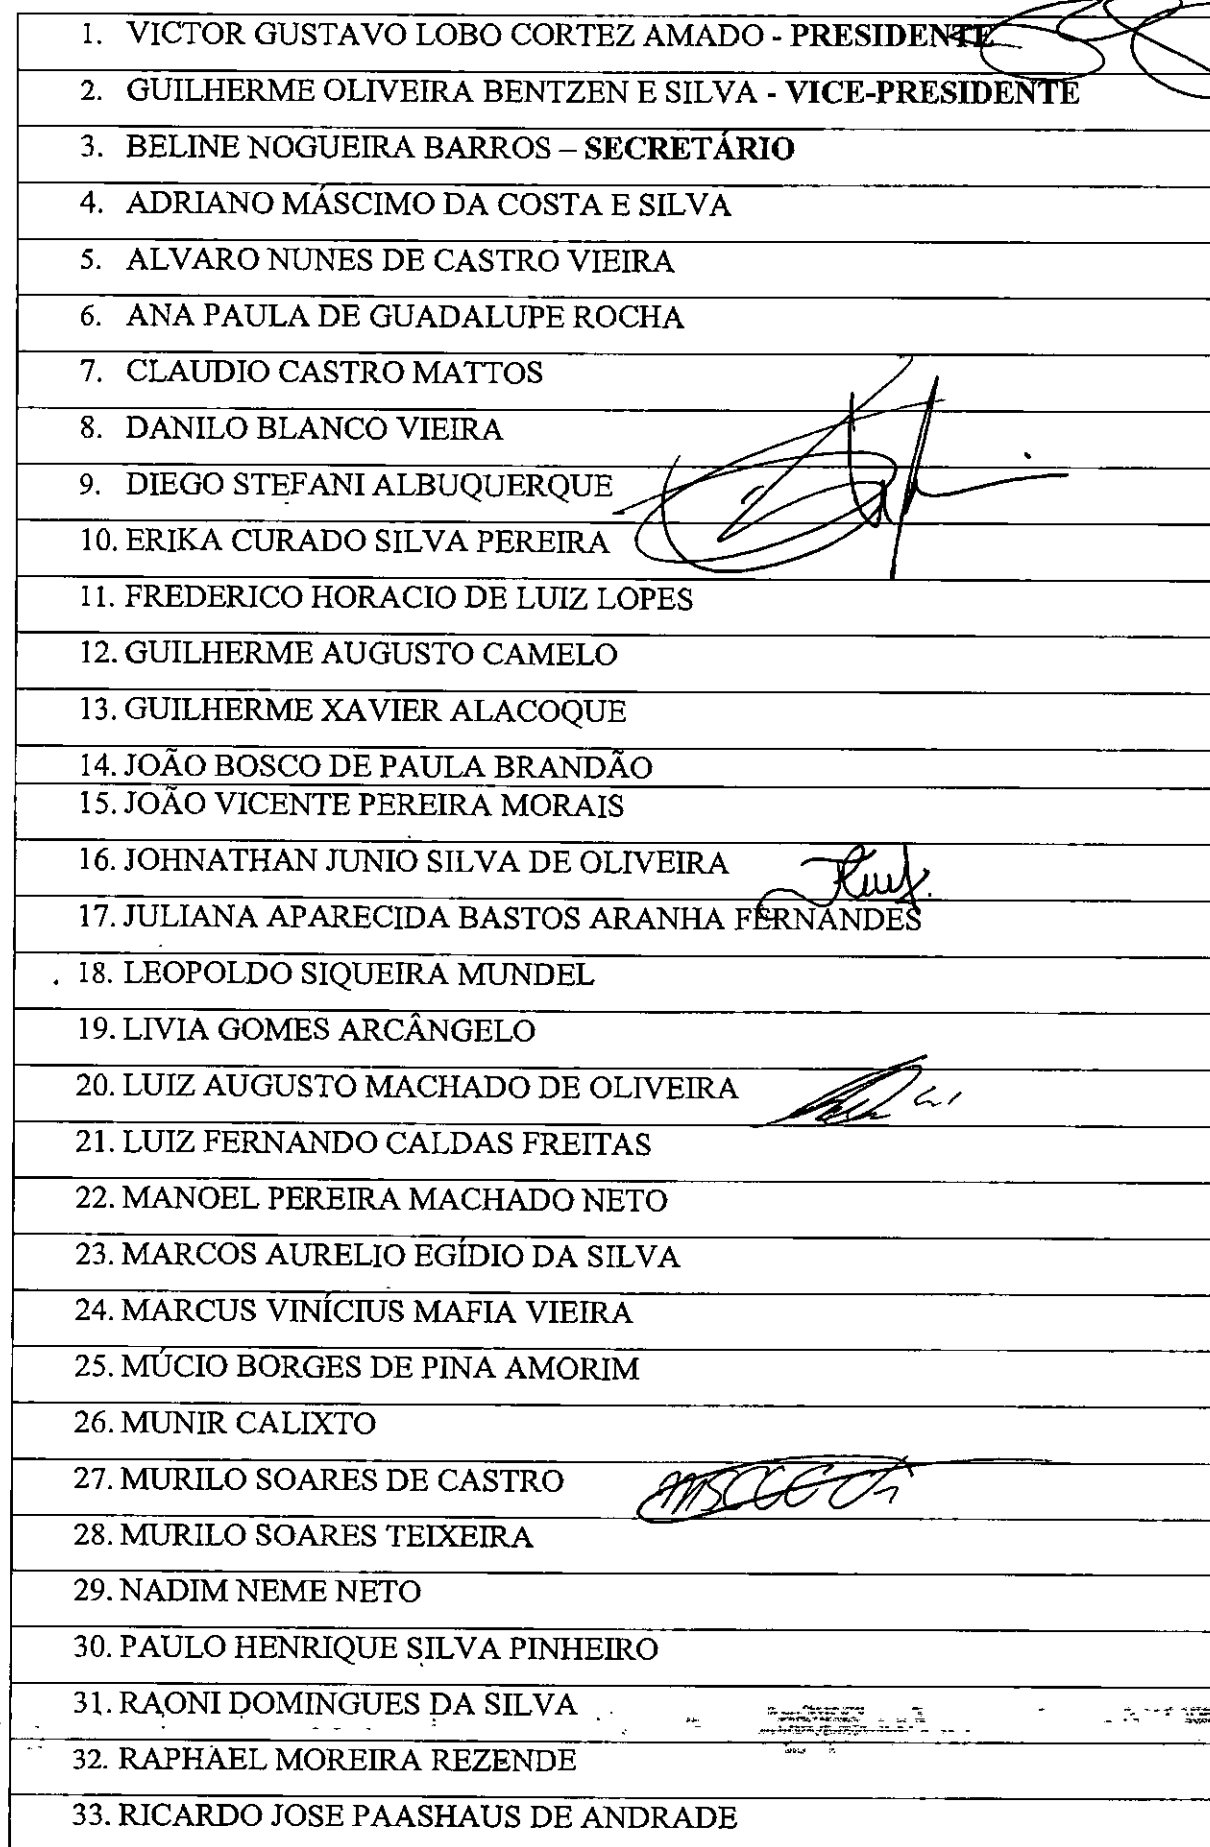 1. VICTOR GUSTAVO LOBO CORTEZ AMADO - PRESIDENTE
2. GUILHERME OLIVEIRA BENTZEN E SILVA - VICE-PRESIDENTE
3. BELINE NOGUEIRA BARROS – SECRETÁRIO
4. ADRIANO MÁSCIMO DA COSTA E SILVA
5. ALVARO NUNES DE CASTRO VIEIRA
6. ANA PAULA DE GUADALUPE ROCHA
7. CLAUDIO CASTRO MATTOS
8. DANILO BLANCO VIEIRA
9. DIEGO STEFANI ALBUQUERQUE
10. ERIKA CURADO SILVA PEREIRA
11. FREDERICO HORACIO DE LUIZ LOPES
12. GUILHERME AUGUSTO CAMELO
13. GUILHERME XAVIER ALACOQUE
14. JOÃO BOSCO DE PAULA BRANDÃO
15. JOÃO VICENTE PEREIRA MORAIS
16. JOHNATHAN JUNIO SILVA DE OLIVEIRA
17. JULIANA APARECIDA BASTOS ARANHA FERNANDES
18. LEOPOLDO SIQUEIRA MUNDEL
19. LIVIA GOMES ARCÂNGELO
20. LUIZ AUGUSTO MACHADO DE OLIVEIRA
21. LUIZ FERNANDO CALDAS FREITAS
22. MANOEL PEREIRA MACHADO NETO
23. MARCOS AURELIO EGÍDIO DA SILVA
24. MARCUS VINÍCIUS MAFIA VIEIRA
25. MÚCIO BORGES DE PINA AMORIM
26. MUNIR CALIXTO
27. MURILO SOARES DE CASTRO
28. MURILO SOARES TEIXEIRA
29. NADIM NEME NETO
30. PAULO HENRIQUE SILVA PINHEIRO
31. RAONI DOMINGUES DA SILVA
32. RAPHAEL MOREIRA REZENDE
33. RICARDO JOSE PAASHAUS DE ANDRADE